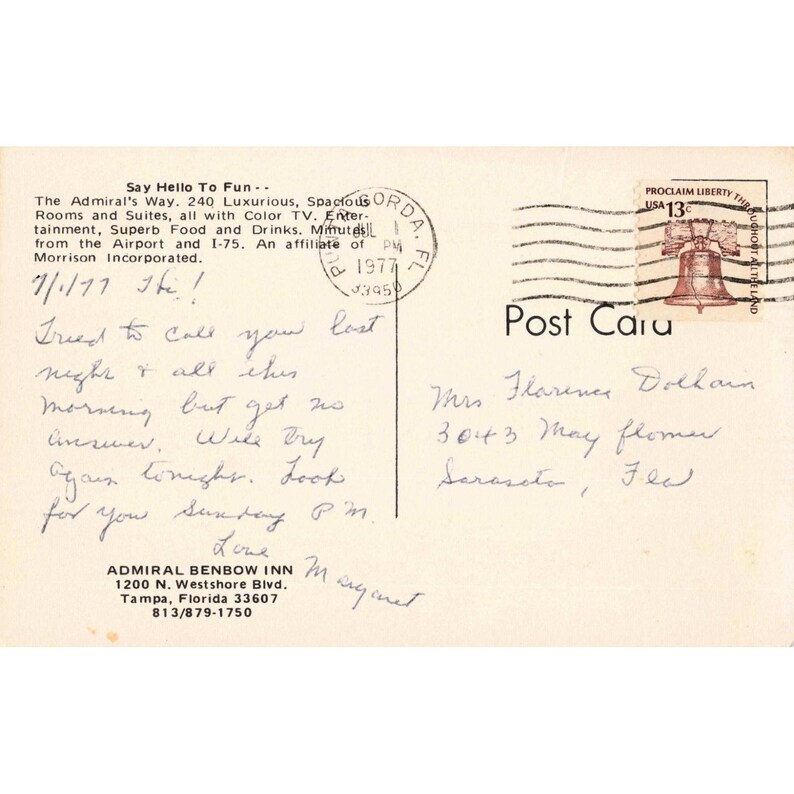 Say Hello To Fun--
The Admiral's Way. 240 Luxurious, Spacious
Rooms and Suites, all with Color TV. Enter-
tainment, Superb Food and Drinks. Minutes
from the Airport and I-75. An affiliate of
Morrison Incorporated.
7/1/77 Hi!
Tried to call you last
night & all this
morning but get no
answer. Will try
again tonight. Look
for you Sunday P.M.
Love
Margaret
ADMIRAL BENBOW INN
1200 N. Westshore Blvd.
Tampa, Florida 33607
813/879-1750
PUNTA GORDA, FL
JUL 1
PM
1977
33950
PROCLAIM LIBERTY THROUGHOUT ALL THE LAND
USA 13c
Post Card
Mrs Florence Dolhain
3043 May flower
Sarasota, Fla